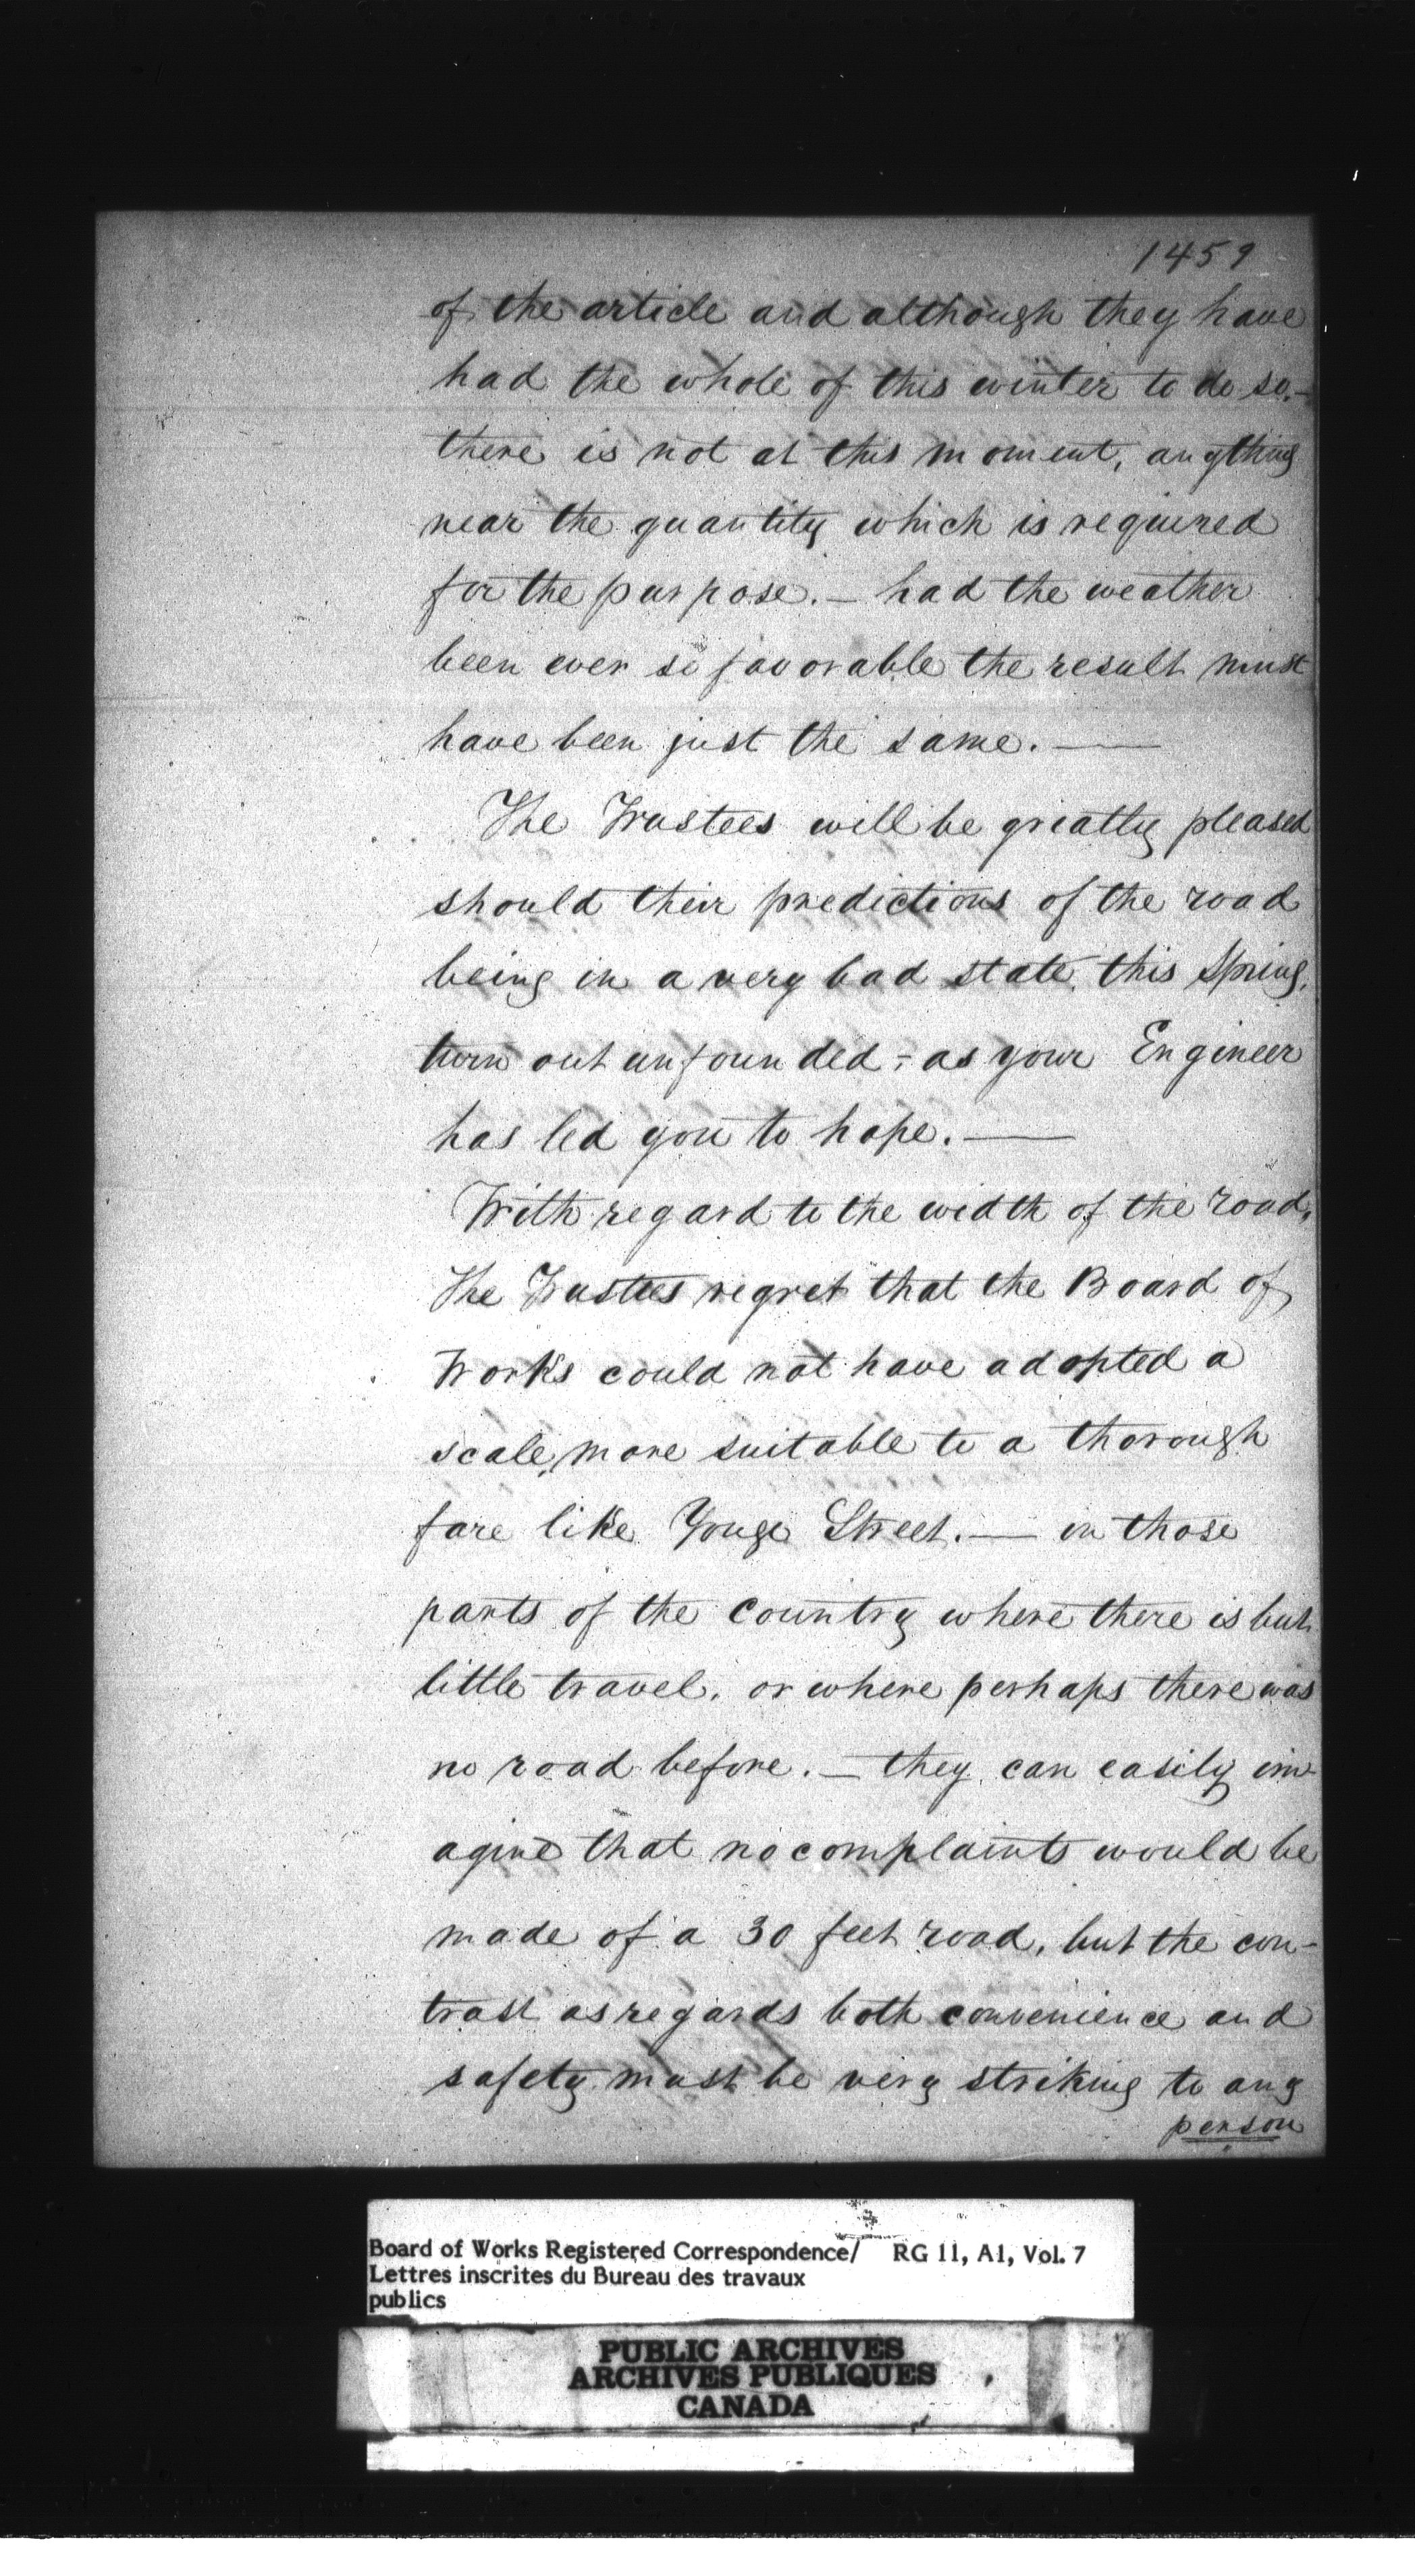 1459
of the article and although they have
had the whole of this winter to do so.—
there is not at this moment, anything
near the quantity which is required
for the purpose.— had the weather
been ever so favorable the result must
have been just the same.—
The Trustees will be greatly pleased
should their predictions of the road
being in a very bad state, this Spring,
turn out unfounded,- as your Engineer
has led you to hope.—
With regard to the width of the road,
The Trustees regret that the Board of
Works could not have adopted a
scale, more suitable to a thorough
fare like Yonge Street.— in those
parts of the country where there is but
little travel, or where perhaps there was
no road before.— they can easily im-
agine that no complaints would be
made of a 30 feet road, but the con-
trast as regards both convenience and
safety must be very striking to any
person
Board of Works Registered Correspondence/ RG 11, A1, Vol. 7
Lettres inscrites du Bureau des travaux
publics
PUBLIC ARCHIVES
ARCHIVES PUBLIQUES
CANADA